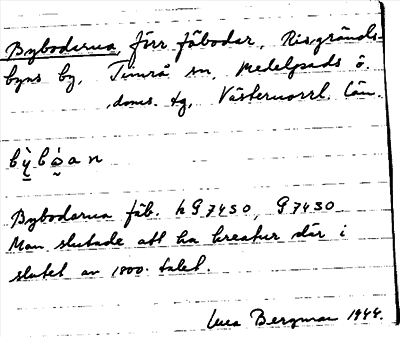 Byboderna, förr fäbodar, Risgrånds-
byns by, Timrå sn, Medelpads ö.
doms. tg, Västernorrl. län.
bỳ̠bó̰an
Bybodarna fäb. h G 7450, G 7430
Man slutade att ha kreatur där i
slutet av 1800-talet.
Bergman 1944.